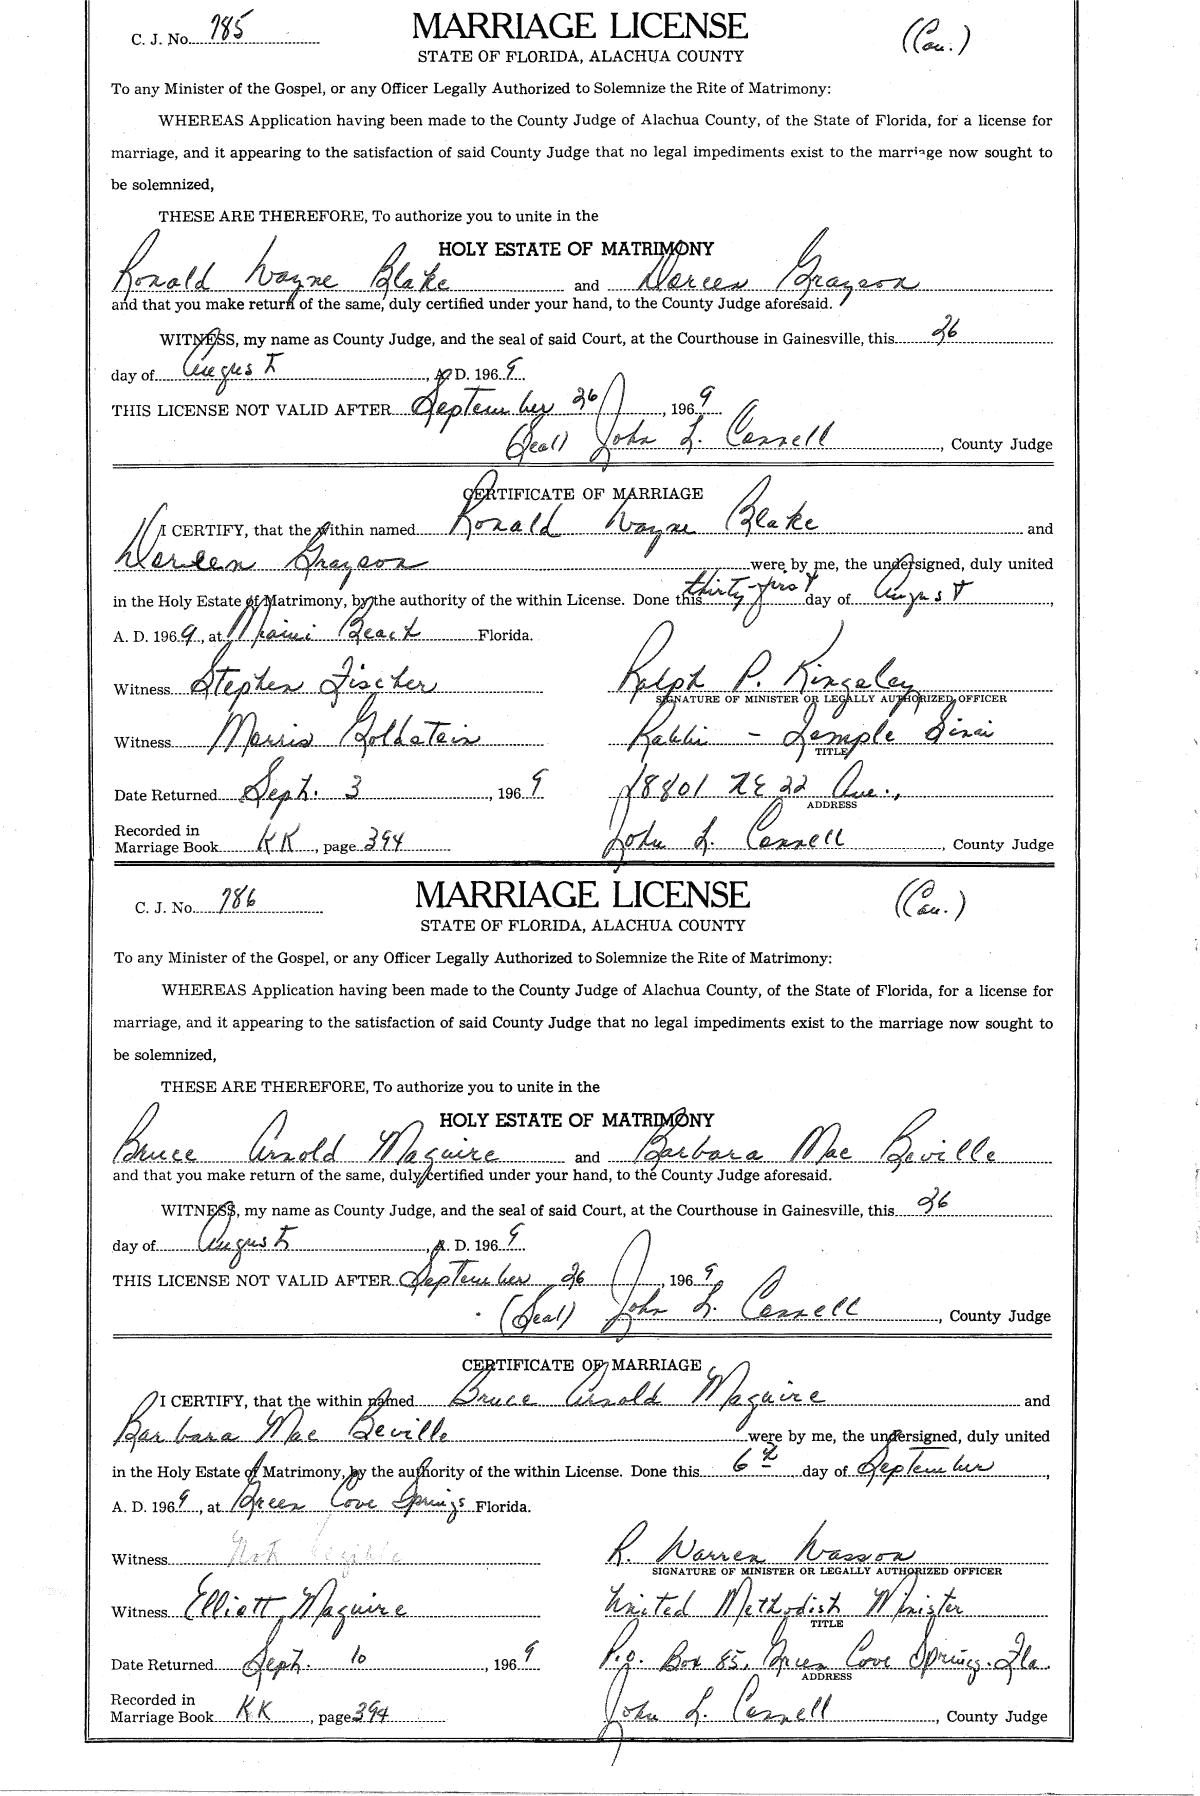 C. J. No. 785 MARRIAGE LICENSE (Cau.)
STATE OF FLORIDA, ALACHUA COUNTY
To any Minister of the Gospel, or any Officer Legally Authorized to Solemnize the Rite of Matrimony:
WHEREAS Application having been made to the County Judge of Alachua County, of the State of Florida, for a license for
marriage, and it appearing to the satisfaction of said County Judge that no legal impediments exist to the marriage now sought to
be solemnized,
THESE ARE THEREFORE, To authorize you to unite in the
HOLY ESTATE OF MATRIMONY
Ronald Wayne Blake and Doreen Grayson
and that you make return of the same, duly certified under your hand, to the County Judge aforesaid.
WITNESS, my name as County Judge, and the seal of said Court, at the Courthouse in Gainesville, this 26
day of August, A. D. 1969
THIS LICENSE NOT VALID AFTER September 26, 1969
(Seal) John L. Connell, County Judge
CERTIFICATE OF MARRIAGE
I CERTIFY, that the within named Ronald Wayne Blake and
Doreen Grayson were by me, the undersigned, duly united
in the Holy Estate of Matrimony, by the authority of the within License. Done this thirty-first day of August,
A. D. 1969, at Miami Beach Florida.
Witness Stephen Fischer Ralph P. Kingsley
SIGNATURE OF MINISTER OR LEGALLY AUTHORIZED OFFICER
Witness Morris Goldstein Rabbi - Temple Sinai
TITLE
Date Returned Sept. 3, 1969 18801 NE 22 Ave.,
ADDRESS
Recorded in
Marriage Book KK, page 394 John L. Connell, County Judge
C. J. No. 786 MARRIAGE LICENSE (Cau.)
STATE OF FLORIDA, ALACHUA COUNTY
To any Minister of the Gospel, or any Officer Legally Authorized to Solemnize the Rite of Matrimony:
WHEREAS Application having been made to the County Judge of Alachua County, of the State of Florida, for a license for
marriage, and it appearing to the satisfaction of said County Judge that no legal impediments exist to the marriage now sought to
be solemnized,
THESE ARE THEREFORE, To authorize you to unite in the
HOLY ESTATE OF MATRIMONY
Bruce Arnold Maguire and Barbara Mae Beville
and that you make return of the same, duly certified under your hand, to the County Judge aforesaid.
WITNESS, my name as County Judge, and the seal of said Court, at the Courthouse in Gainesville, this 26
day of August, A. D. 1969
THIS LICENSE NOT VALID AFTER September 26, 1969
(Seal) John L. Connell, County Judge
CERTIFICATE OF MARRIAGE
I CERTIFY, that the within named Bruce Arnold Maguire and
Barbara Mae Beville were by me, the undersigned, duly united
in the Holy Estate of Matrimony, by the authority of the within License. Done this 6th day of September,
A. D. 1969, at Green Cove Springs Florida.
Witness Not legible R. Warren Wasson
SIGNATURE OF MINISTER OR LEGALLY AUTHORIZED OFFICER
Witness Elliott Maguire United Methodist Minister
TITLE
Date Returned Sept. 10, 1969 P.O. Box 85, Green Cove Springs. Fla.
ADDRESS
Recorded in
Marriage Book KK, page 394 John L. Connell, County Judge